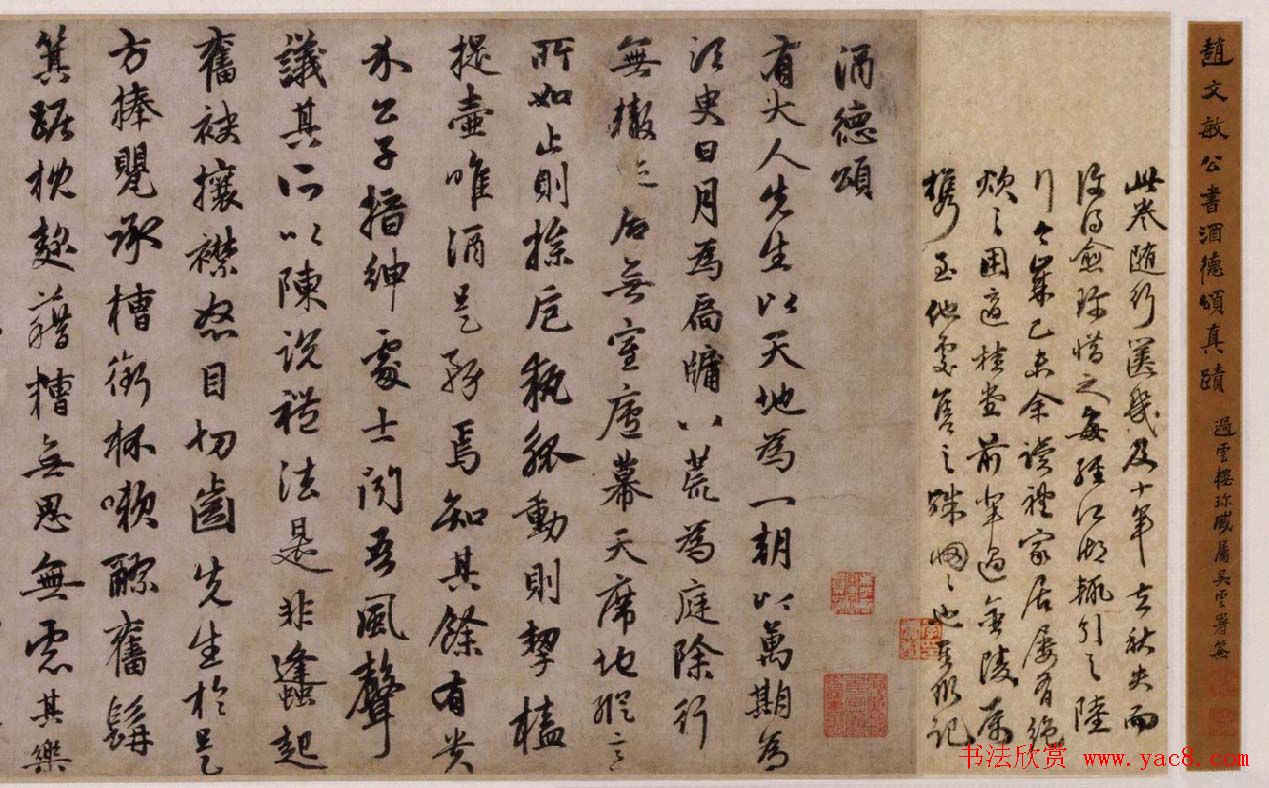 趙文敏公書酒德頌真蹟 過雲樓珍藏屬吳雲署簽
此卷随行篋幾及十年去秋失而
復得愈珎惜之每經江湖輒引之陸
行今歲己未余讀禮家居屢有絶
炊之困適桂堂前輩過金陵属
携至他處售之殊惘々也
記
酒德頌
有大人先生以天地為一朝以萬期為
須臾日月為扃牖八荒為庭除行
無轍迹居無室廬幕天席地縱意
所如止則操卮執瓢動則挈榼
提壺唯酒是務焉知其餘有貴
介公子搢紳處士聞吾風聲
議其所以陳説禮法是非蠭起
奮袂攘襟怒目切齒先生於是
方捧甖承槽銜杯漱醪奮髯
箕踞枕麴藉糟無思無慮其樂
书法欣赏 www.yac8.com